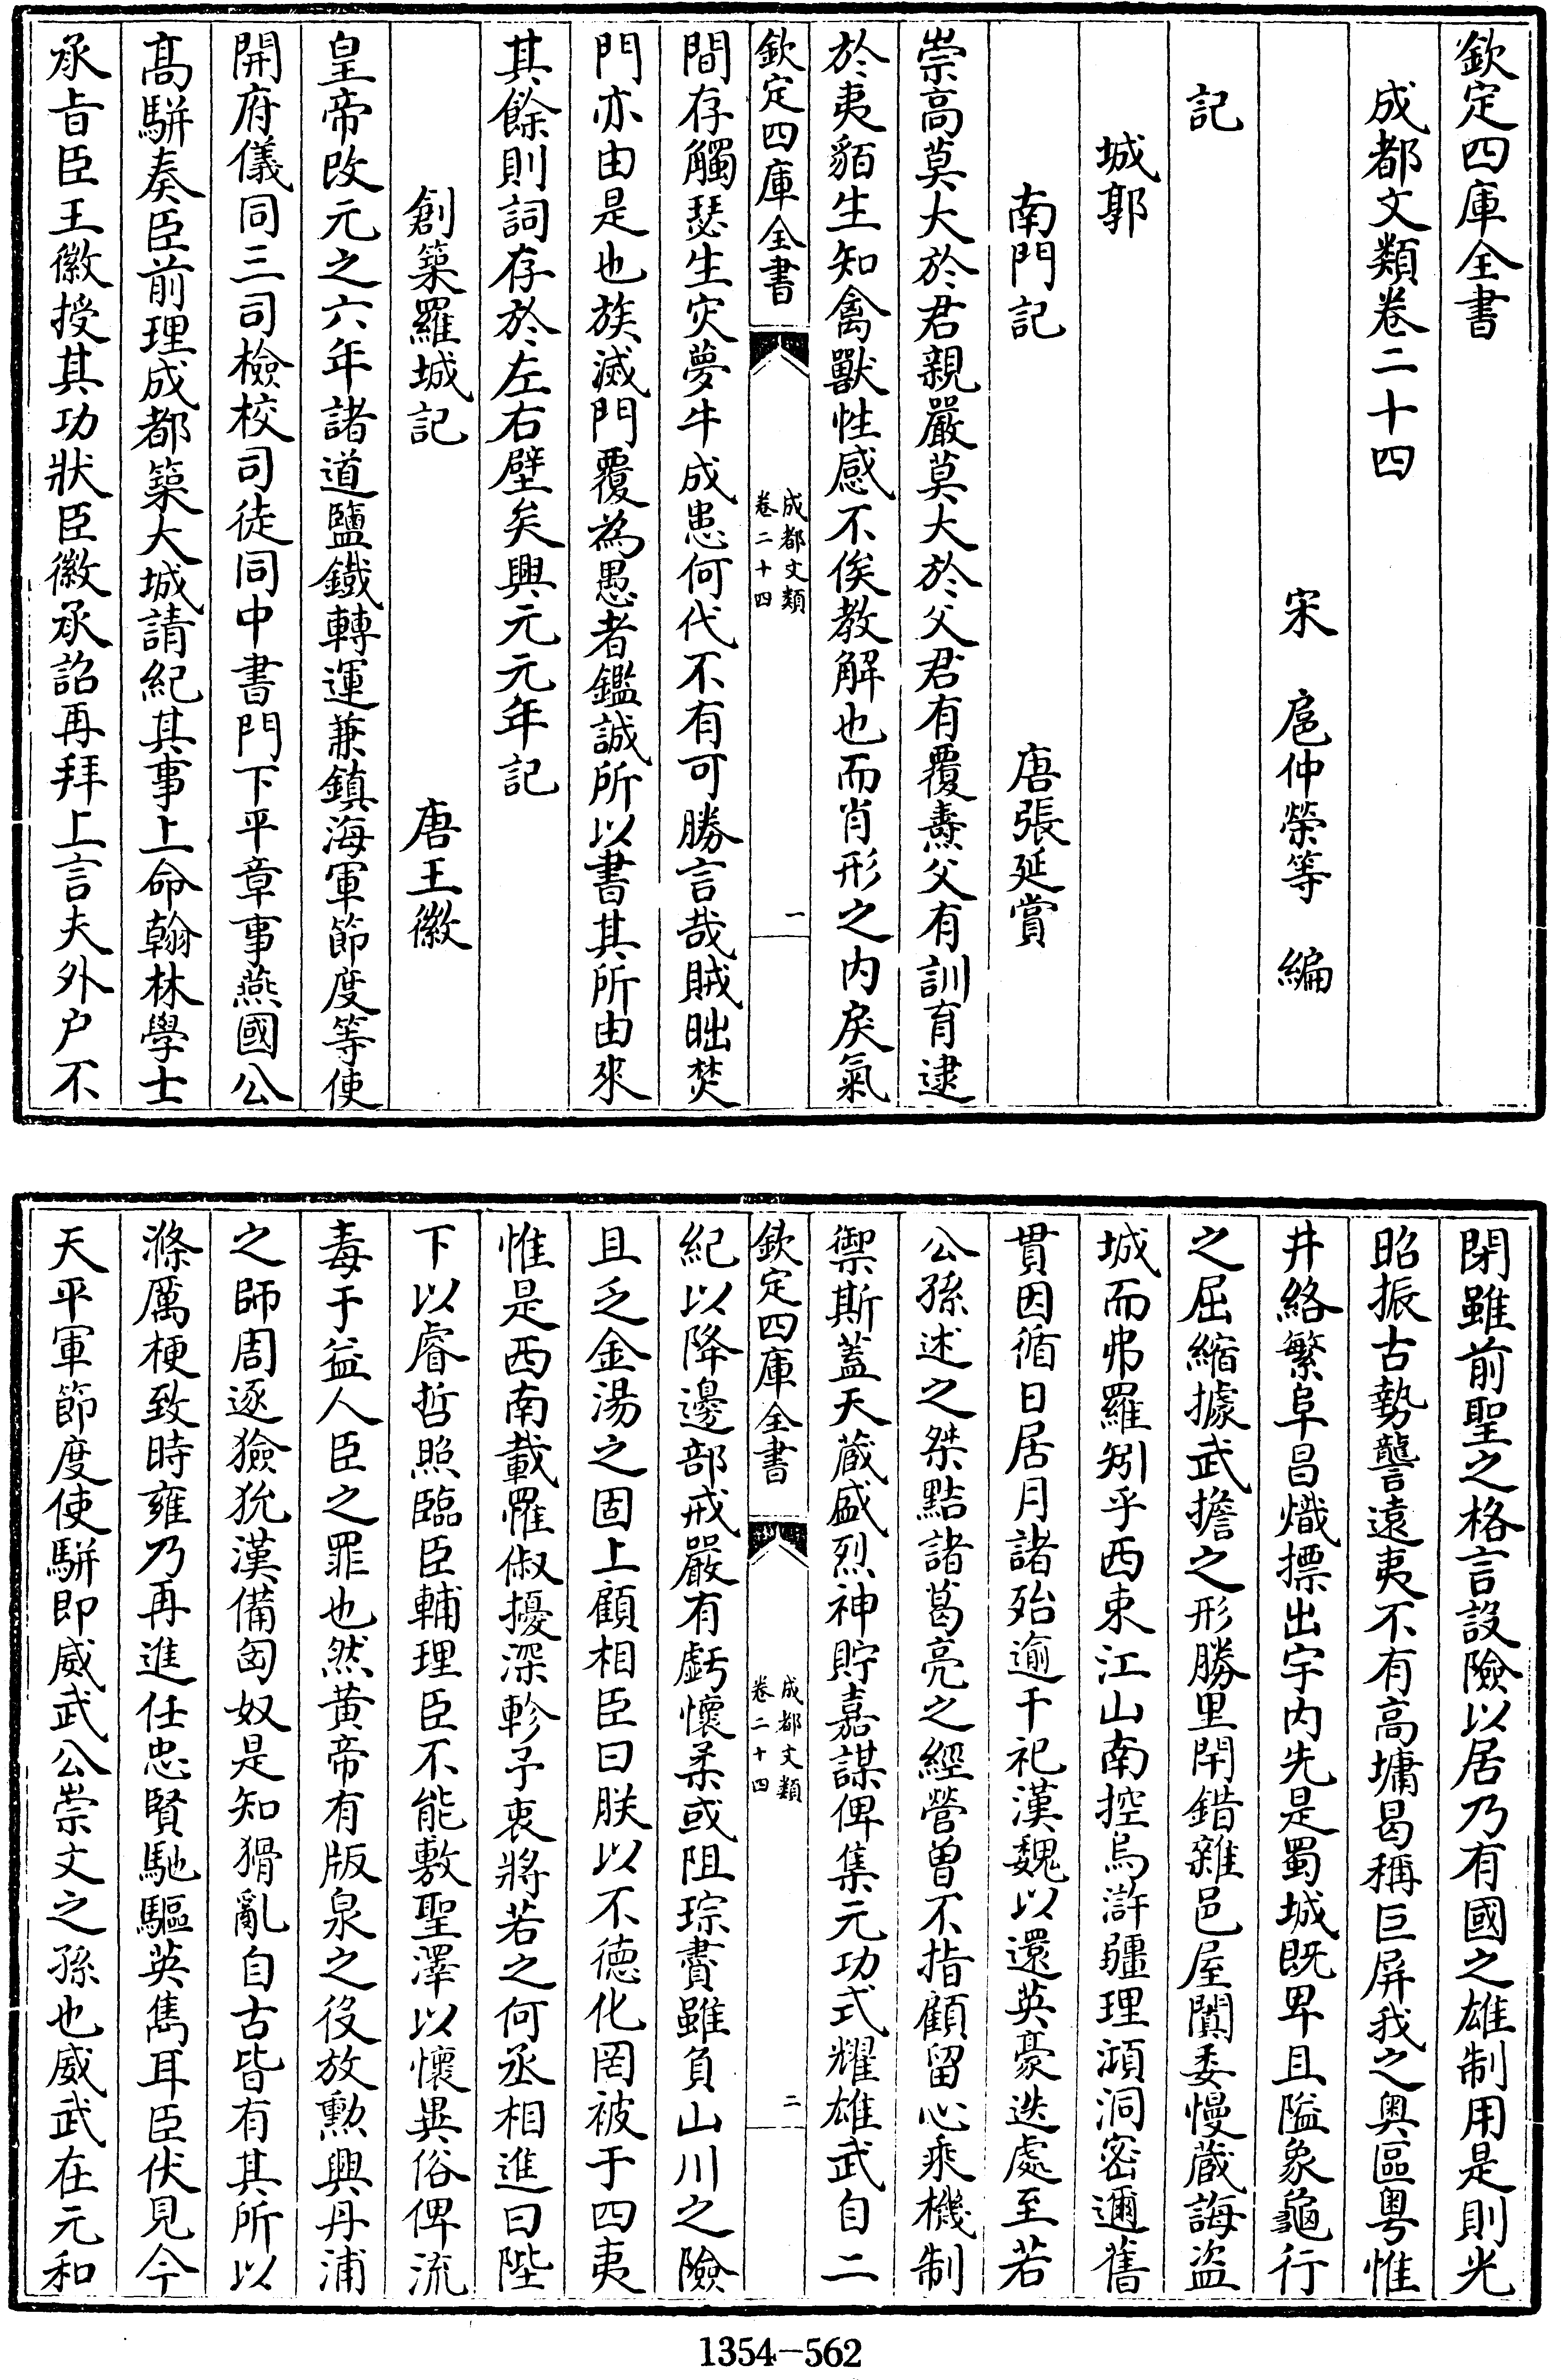 欽定四庫全書
成都文類卷二十四
宋　扈仲榮等　編
記
城郭
南門記　唐張延賞
崇高莫大於君親嚴莫大於父君有覆燾父有訓育逮
於夷貊生知禽獸性感不俟教解也而肖形之内戾氣
欽定四庫全書
成都文類
卷二十四
一
間存觸瑟生灾夢牛成患何代不有可勝言哉賊朏焚
門亦由是也族滅門覆為愚者鑑誠所以書其所由來
其餘則詞存於左右壁矣興元元年記
創築羅城記　唐王徽
皇帝改元之六年諸道鹽鐵轉運兼鎮海軍節度等使
開府儀同三司檢校司徒同中書門下平章事燕國公
髙駢奏臣前理成都築大城請紀其事上命翰林學士
承㫖臣王徽授其功狀臣徽承詔再拜上言夫外户不
閉雖前聖之格言設險以居乃有國之雄制用是則光
昭振古勢讋遠夷不有高墉曷稱巨屏我之奥區粤惟
井絡繁阜昌熾摽出宇内先是蜀城既卑且隘象龜行
之屈縮據武擔之形勝里閈錯雜邑屋闐委慢蔵誨盗
城而弗羅矧乎西束江山南控烏滸疆理澒洞密邇舊
貫因循日居月諸殆逾千祀漢魏以還英豪迭處至若
公孫述之桀黠諸葛亮之經營曽不指顧留心乘機制
禦斯蓋天蔵盛烈神貯嘉謀俾集元功式耀雄武自二
欽定四庫全書
成都文類
卷二十四
二
紀以降邊部戒嚴有虧懷柔或阻琮賮雖負山川之險
且乏金湯之固上顧相臣曰朕以不德化罔被于四夷
惟是西南載罹俶擾深軫予衷將若之何丞相進曰陛
下以睿哲照臨臣輔理臣不能敷聖澤以懷異俗俾流
毒于益人臣之罪也然黄帝有版泉之役放勲興丹浦
之師周逐獫狁漢備匈奴是知猾亂自古皆有其所以
滌厲梗致時雍乃再進任忠賢馳驅英雋耳臣伏見今
天平軍節度使駢即威武公崇文之孫也威武在元和
1354-562